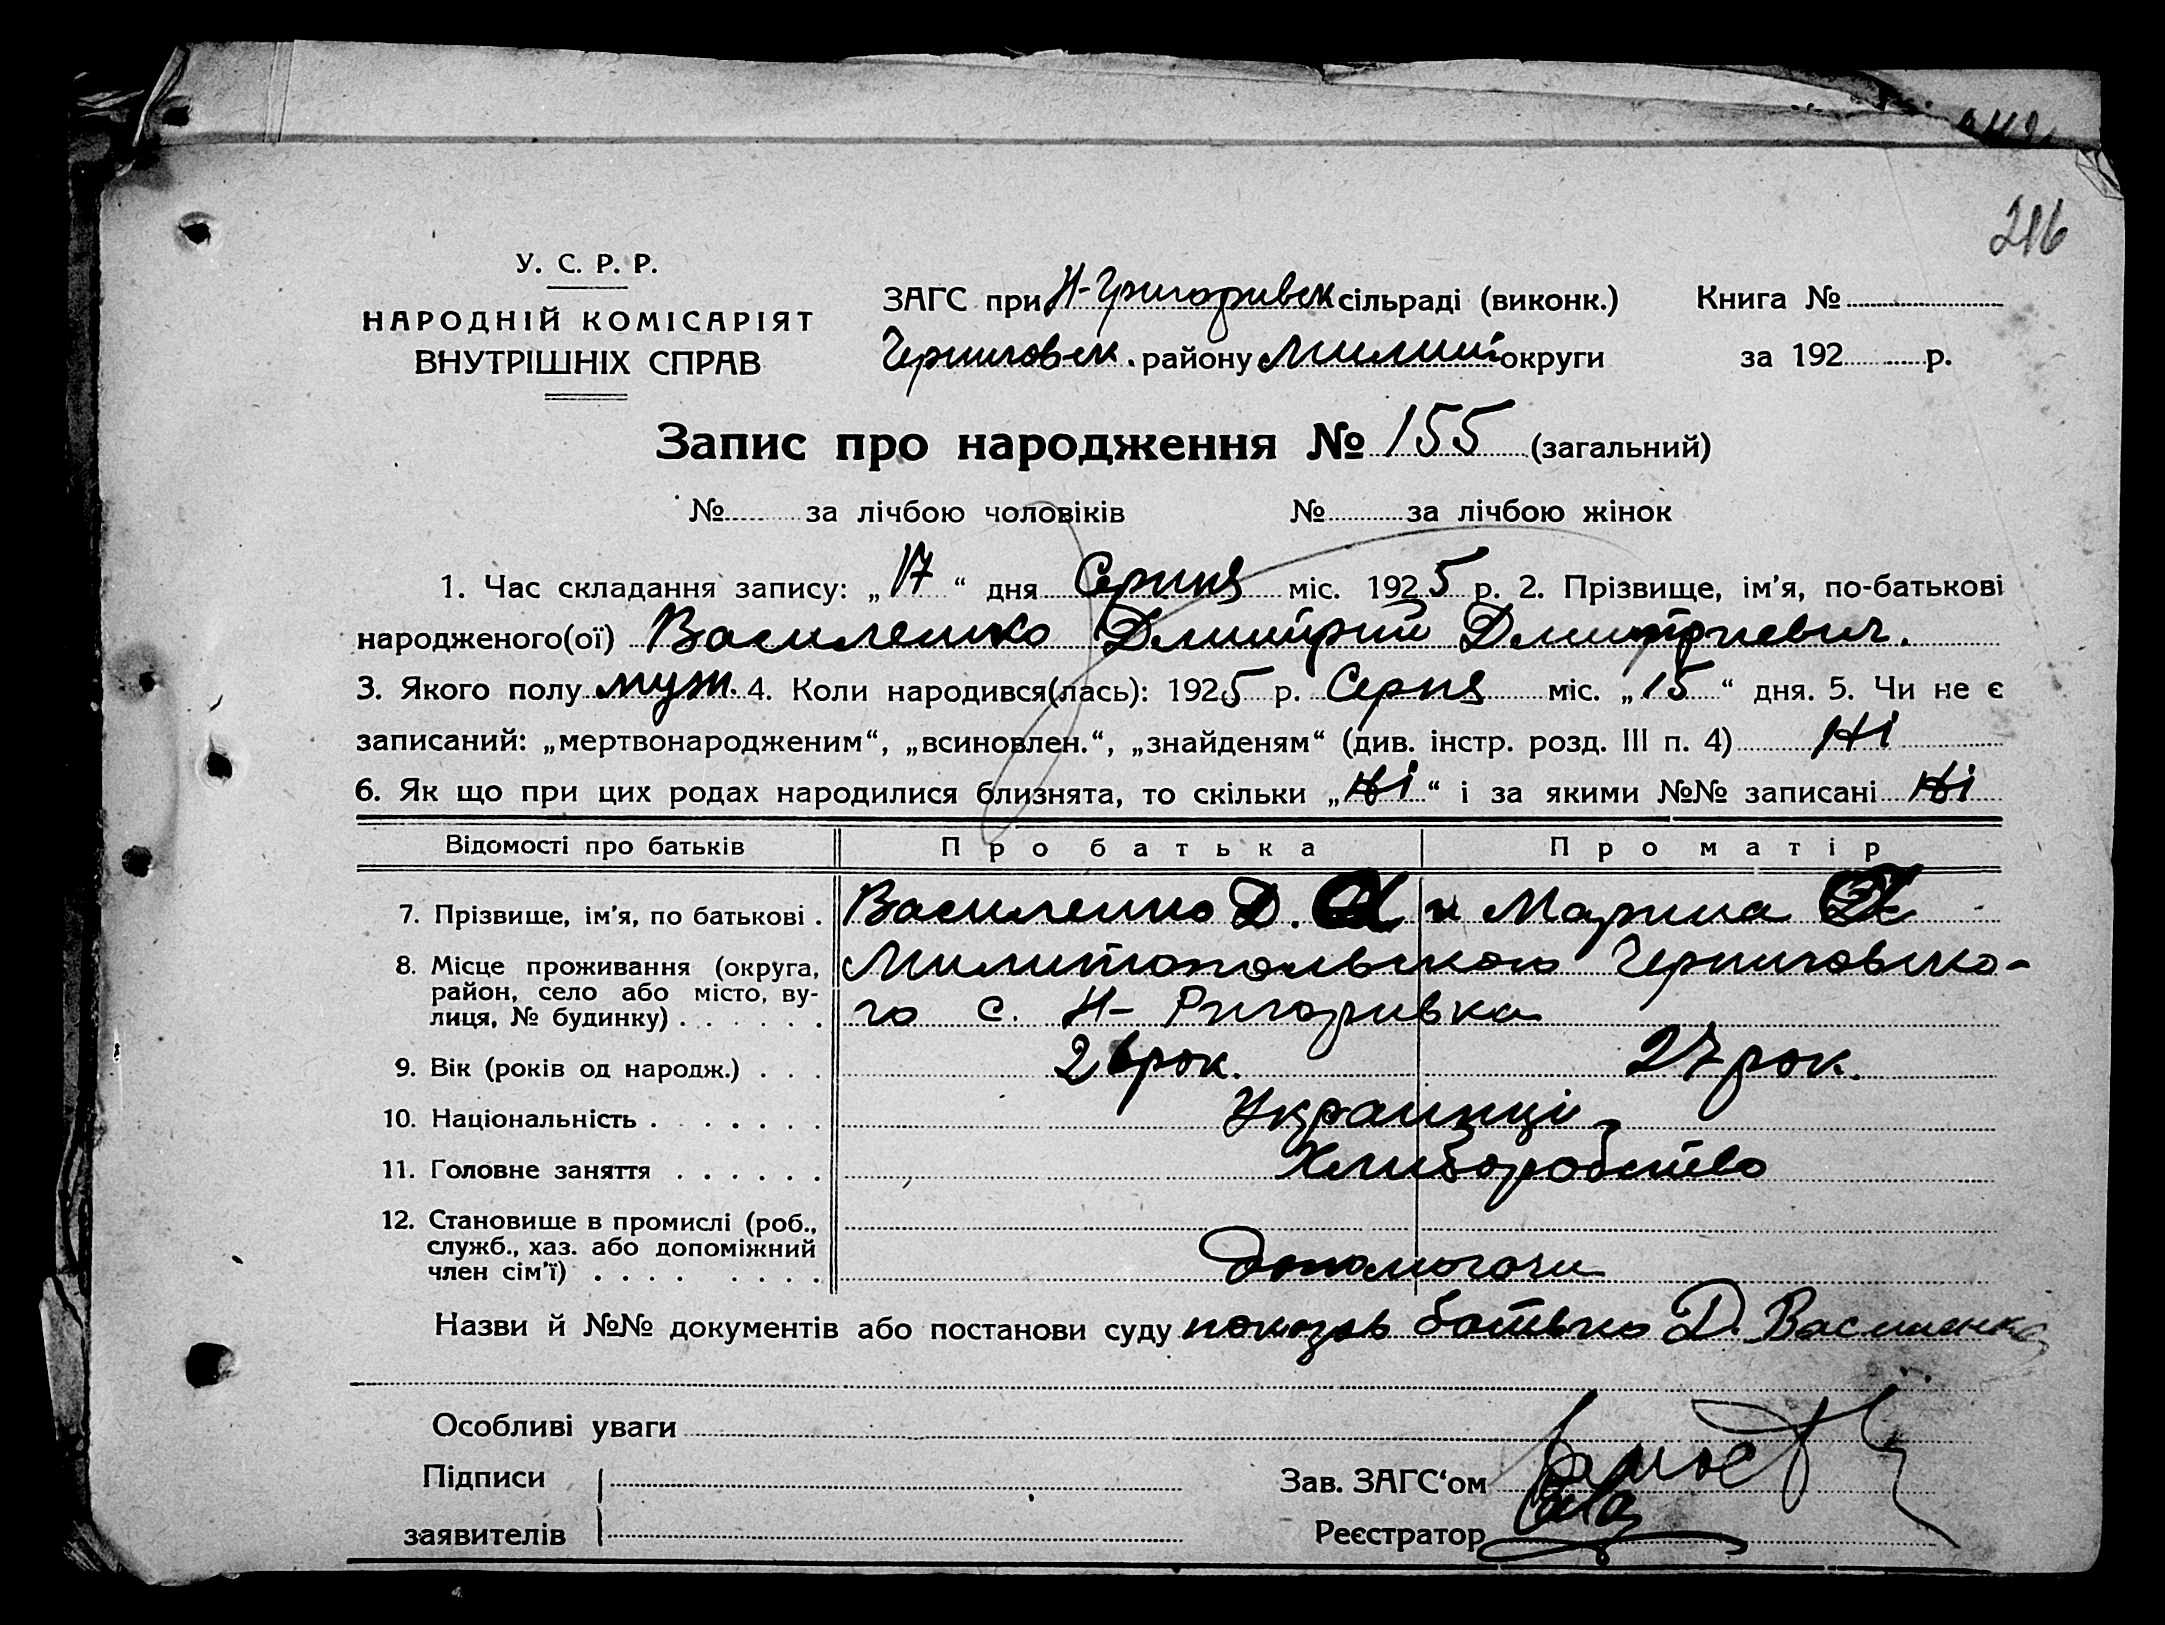 216
У. С. Р. Р.
НАРОДНІЙ КОМІСАРІЯТ
ВНУТРІШНІХ СПРАВ
ЗАГС при Н-Григоривск сільраді (виконк.) Книга №
Черниговск. району Милит округи за 192 р.
Запис про народження № 155 (загальний)
№ за лічбою чоловіків № за лічбою жінок
1. Час складання запису: „17“ дня Серпня міс. 1925 р. 2. Прізвище, ім'я, по-батькові
народженого(ої) Василенко Дмитрий Дмитриевич.
3. Якого полу муж. 4. Коли народився(лась): 1925 р. Серпня міс. „15“ дня. 5. Чи не є
записаний: „мертвонародженим“, „всиновлен.“, „знайденям“ (див. інстр. розд. III п. 4) Ні
6. Як що при цих родах народилися близнята, то скільки „Ні“ і за якими №№ записані Ні
Відомості про батьків Про батька Про матір
7. Прізвище, ім'я, по батькові . Василенко Д. и Марина
8. Місце проживання (округа, Милитопольского Черниговско-
район, село або місто, ву-
лиця, № будинку) . . . . . . го с. Н- Ригоривка
9. Вік (років од народж.) . . . 26 рок. 27 рок.
10. Національність . . . . . . . Украинці
11. Головне заняття . . . . . . Хлиборобство
12. Становище в промислі (роб.,
служб., хаз. або допоміжний
член сім'ї) . . . . . . . . Допомогачи
Назви й №№ документів або постанови суду показав батько Д. Василенко
Особливі уваги
Підписи
Зав. ЗАГС'ом
заявителів
Реєстратор